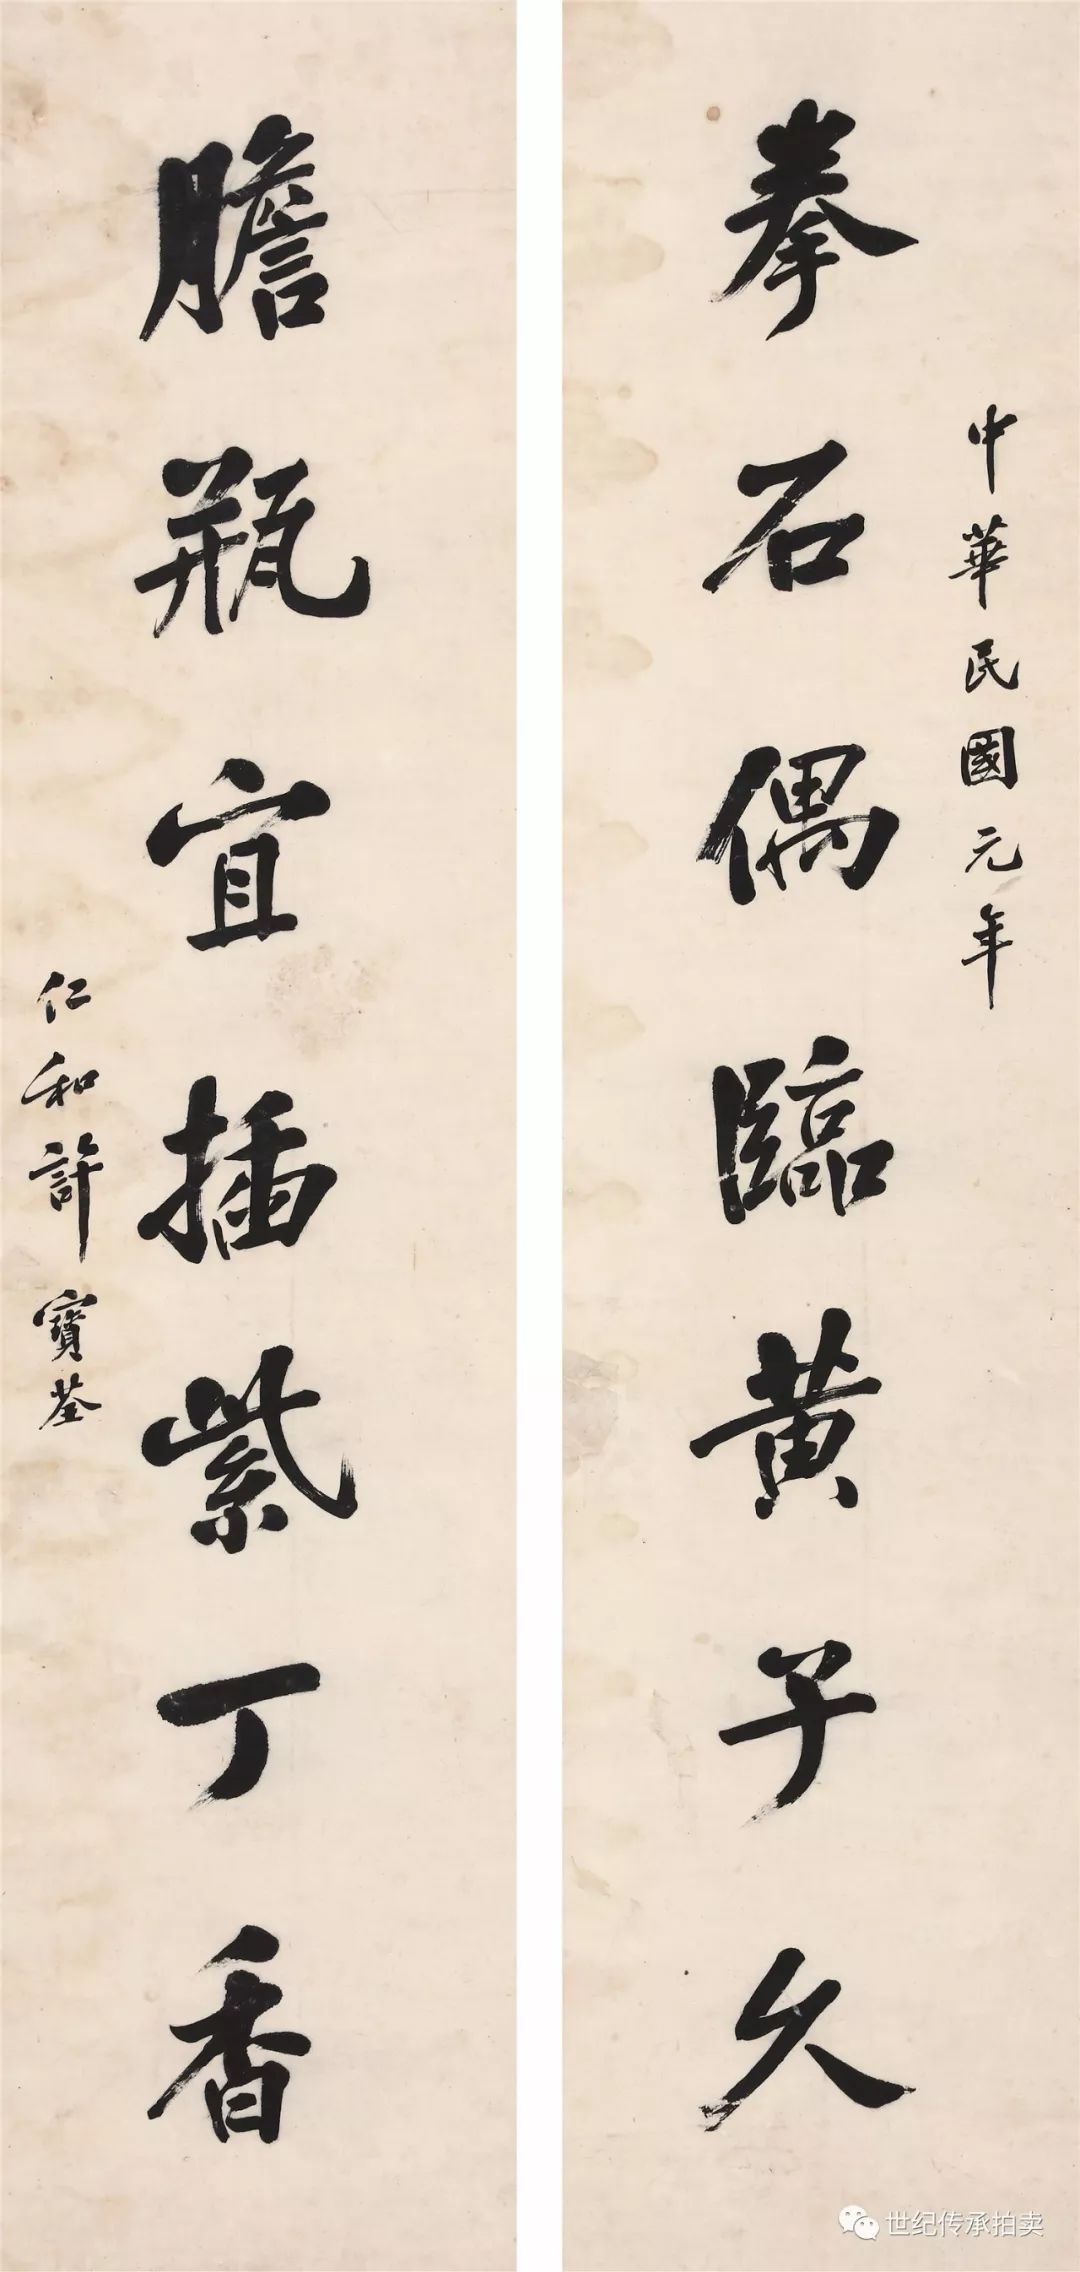 拳石偶臨黄子久
中華民國元年
膽瓶宜插紫丁香
仁和許寶荃
世纪传承拍卖